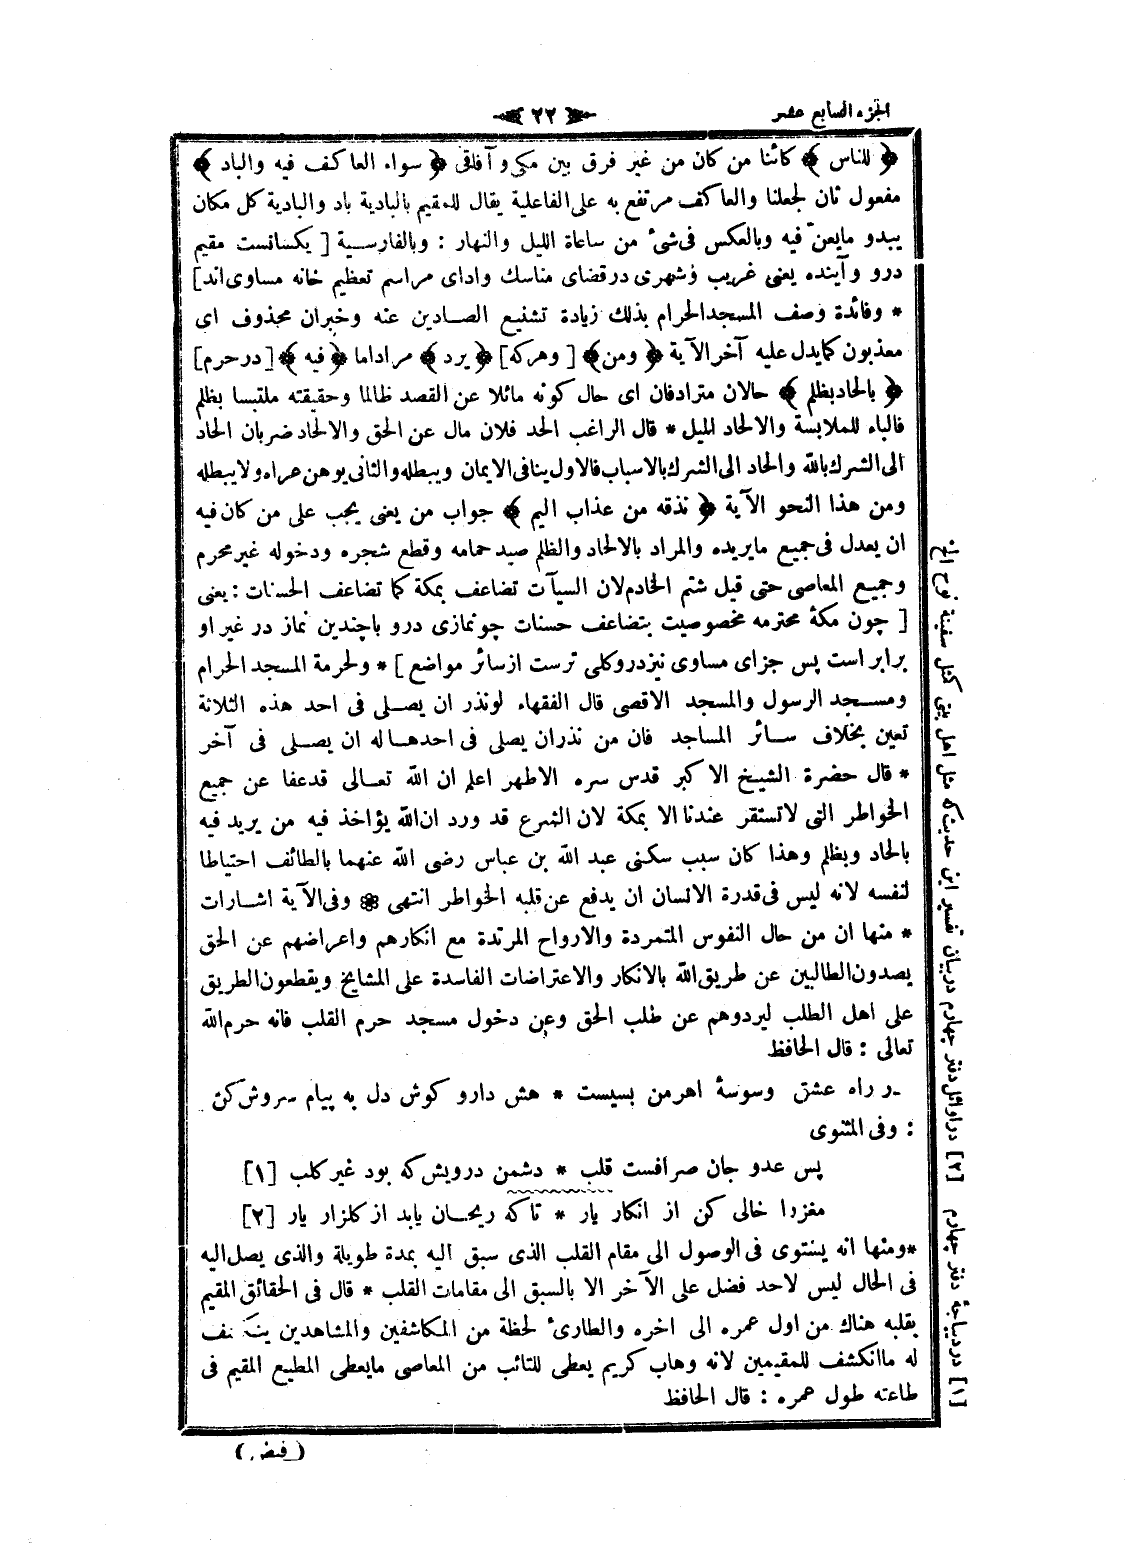 الجزء السابع عشر
٢٢
﴿ للناس ﴾ كائنا من كان من غير فرق بين مكى وآفاقى ﴿ سواء العاكف فيه والباد ﴾
مفعول ثان لجعلنا والعاكف مرتفع به على الفاعلية يقال للمقيم بالبادية باد والبادية كل مكان
يبدو مايعن فيه وبالعكس فى شئ من ساعاة الليل والنهار : وبالفارسية [ يكسانست مقيم
درو وآينده يعنى غريب وشهرى درقضاى مناسك واداى مراسم تعظيم خانه مساوى اند]
* وفائدة وصف المسجد الحرام بذلك زيادة تشنيع الصادين عنه وخبران محذوف اى
معذبون كمايدل عليه آخر الآية ﴿ ومن ﴾ [ وهركه] ﴿ يرد ﴾ مراداما ﴿ فيه ﴾ [درحرم]
﴿ بالحاد بظلم ﴾ حالان مترادفان اى حال كونه مائلا عن القصد ظالما وحقيقته ملتبسا بظلم
فالباء للملابسة والالحاد الميل * قال الراغب الحد فلان مال عن الحق والالحاد ضربان الحاد
الى الشرك بالله والحاد الى الشرك بالاسباب فالاول ينافى الايمان ويبطله والثانى يوهن عراه ولا يبطله
ومن هذا النحو الآية ﴿ نذقه من عذاب اليم ﴾ جواب من يعنى يجب على من كان فيه
ان يعدل فى جميع مايريده والمراد بالالحاد والظلم صيد حمامه وقطع شجره ودخوله غير محرم
وجميع المعاصى حتى قيل شتم الخادم لان السيآت تضاعف بمكة كما تضاعف الحسنات : يعنى
[ چون مكهٔ محترمه مخصوصيت بتضاعف حسنات چو نمازى درو باچندين نماز در غير او
برابر است پس جزاى مساوى نيز دروكلى ترست از سائر مواضع ] * ولحرمة المسجد الحرام
ومسجد الرسول والمسجد الاقصى قال الفقهاء لونذر ان يصلى فى احد هذه الثلاثة
تعين بخلاف سائر المساجد فان من نذر ان يصلى فى احدها له ان يصلى فى آخر
* قال حضرة الشيخ الاكبر قدس سره الاطهر اعلم ان الله تعالى قدعفا عن جميع
الخواطر التى لاتستقر عندنا الا بمكة لان الشرع قد ورد ان الله يؤاخذ فيه من يريد فيه
بالحاد وبظلم وهذا كان سبب سكنى عبد الله بن عباس رضى الله عنهما بالطائف احتياطا
لنفسه لانه ليس فى قدرة الانسان ان يدفع عن قلبه الخواطر انتهى ❁ وفى الآية اشارات
* منها ان من حال النفوس المتمردة والارواح المرتدة مع انكارهم واعراضهم عن الحق
يصدون الطالبين عن طريق الله بالانكار والاعتراضات الفاسدة على المشايخ ويقطعون الطريق
على اهل الطلب ليردوهم عن طلب الحق وعن دخول مسجد حرم القلب فانه حرم الله
تعالى : قال الحافظ
ر راه عشق وسوسهٔ اهرمن بسيست * هش دارو كوش دل به پيام سروش كن
: وفى المثنوى
پس عدو جان صرافست قلب * دشمن درويش كه بود غير كلب [١]
مغز را خالى كن از انكار يار * تاكه ريحان يابد از كلزار يار [٢]
* ومنها انه يستوى فى الوصول الى مقام القلب الذى سبق اليه بمدة طويلة والذى يصل اليه
فى الحال ليس لاحد فضل على الآخر الا بالسبق الى مقامات القلب * قال فى الحقائق المقيم
بقلبه هناك من اول عمره الى اخره والطارئ لحظة من المكاشفين والمشاهدين ينكشف
له ماانكشف للمقيمين لانه وهاب كريم يعطى للتائب من المعاصى مايعطى المطيع المقيم فى
طاعته طول عمره : قال الحافظ
( فيض )
[١] در ديباجهٔ دفتر چهارم [٢] در اوائل دفتر چهارم دربيان تفسير اين حديث كه مثل اهل بيتى كمثل سفينة نوح الخ